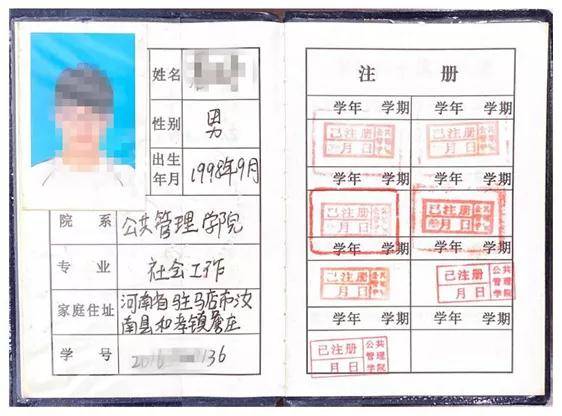 姓名
性别 男
出生年月 1998年9月
院系 公共管理学院
专业 社会工作
家庭住址 河南省驻马店市汝
南县和孝镇 庄
学号 2016 136
注册
学年 学期 学年 学期
已注册 公共管理学院 月 日
已注册 公共管理学院 月 日
学年 学期 学年 学期
已注册 公共管理学院 月 日
已注册 公共管理学院 月 日
学年 学期 学年 学期
已注册 公共管理学院 月 日
已注册 公共管理学院 月 日
学年 学期 学年 学期
已注册 公共管理学院 月 日